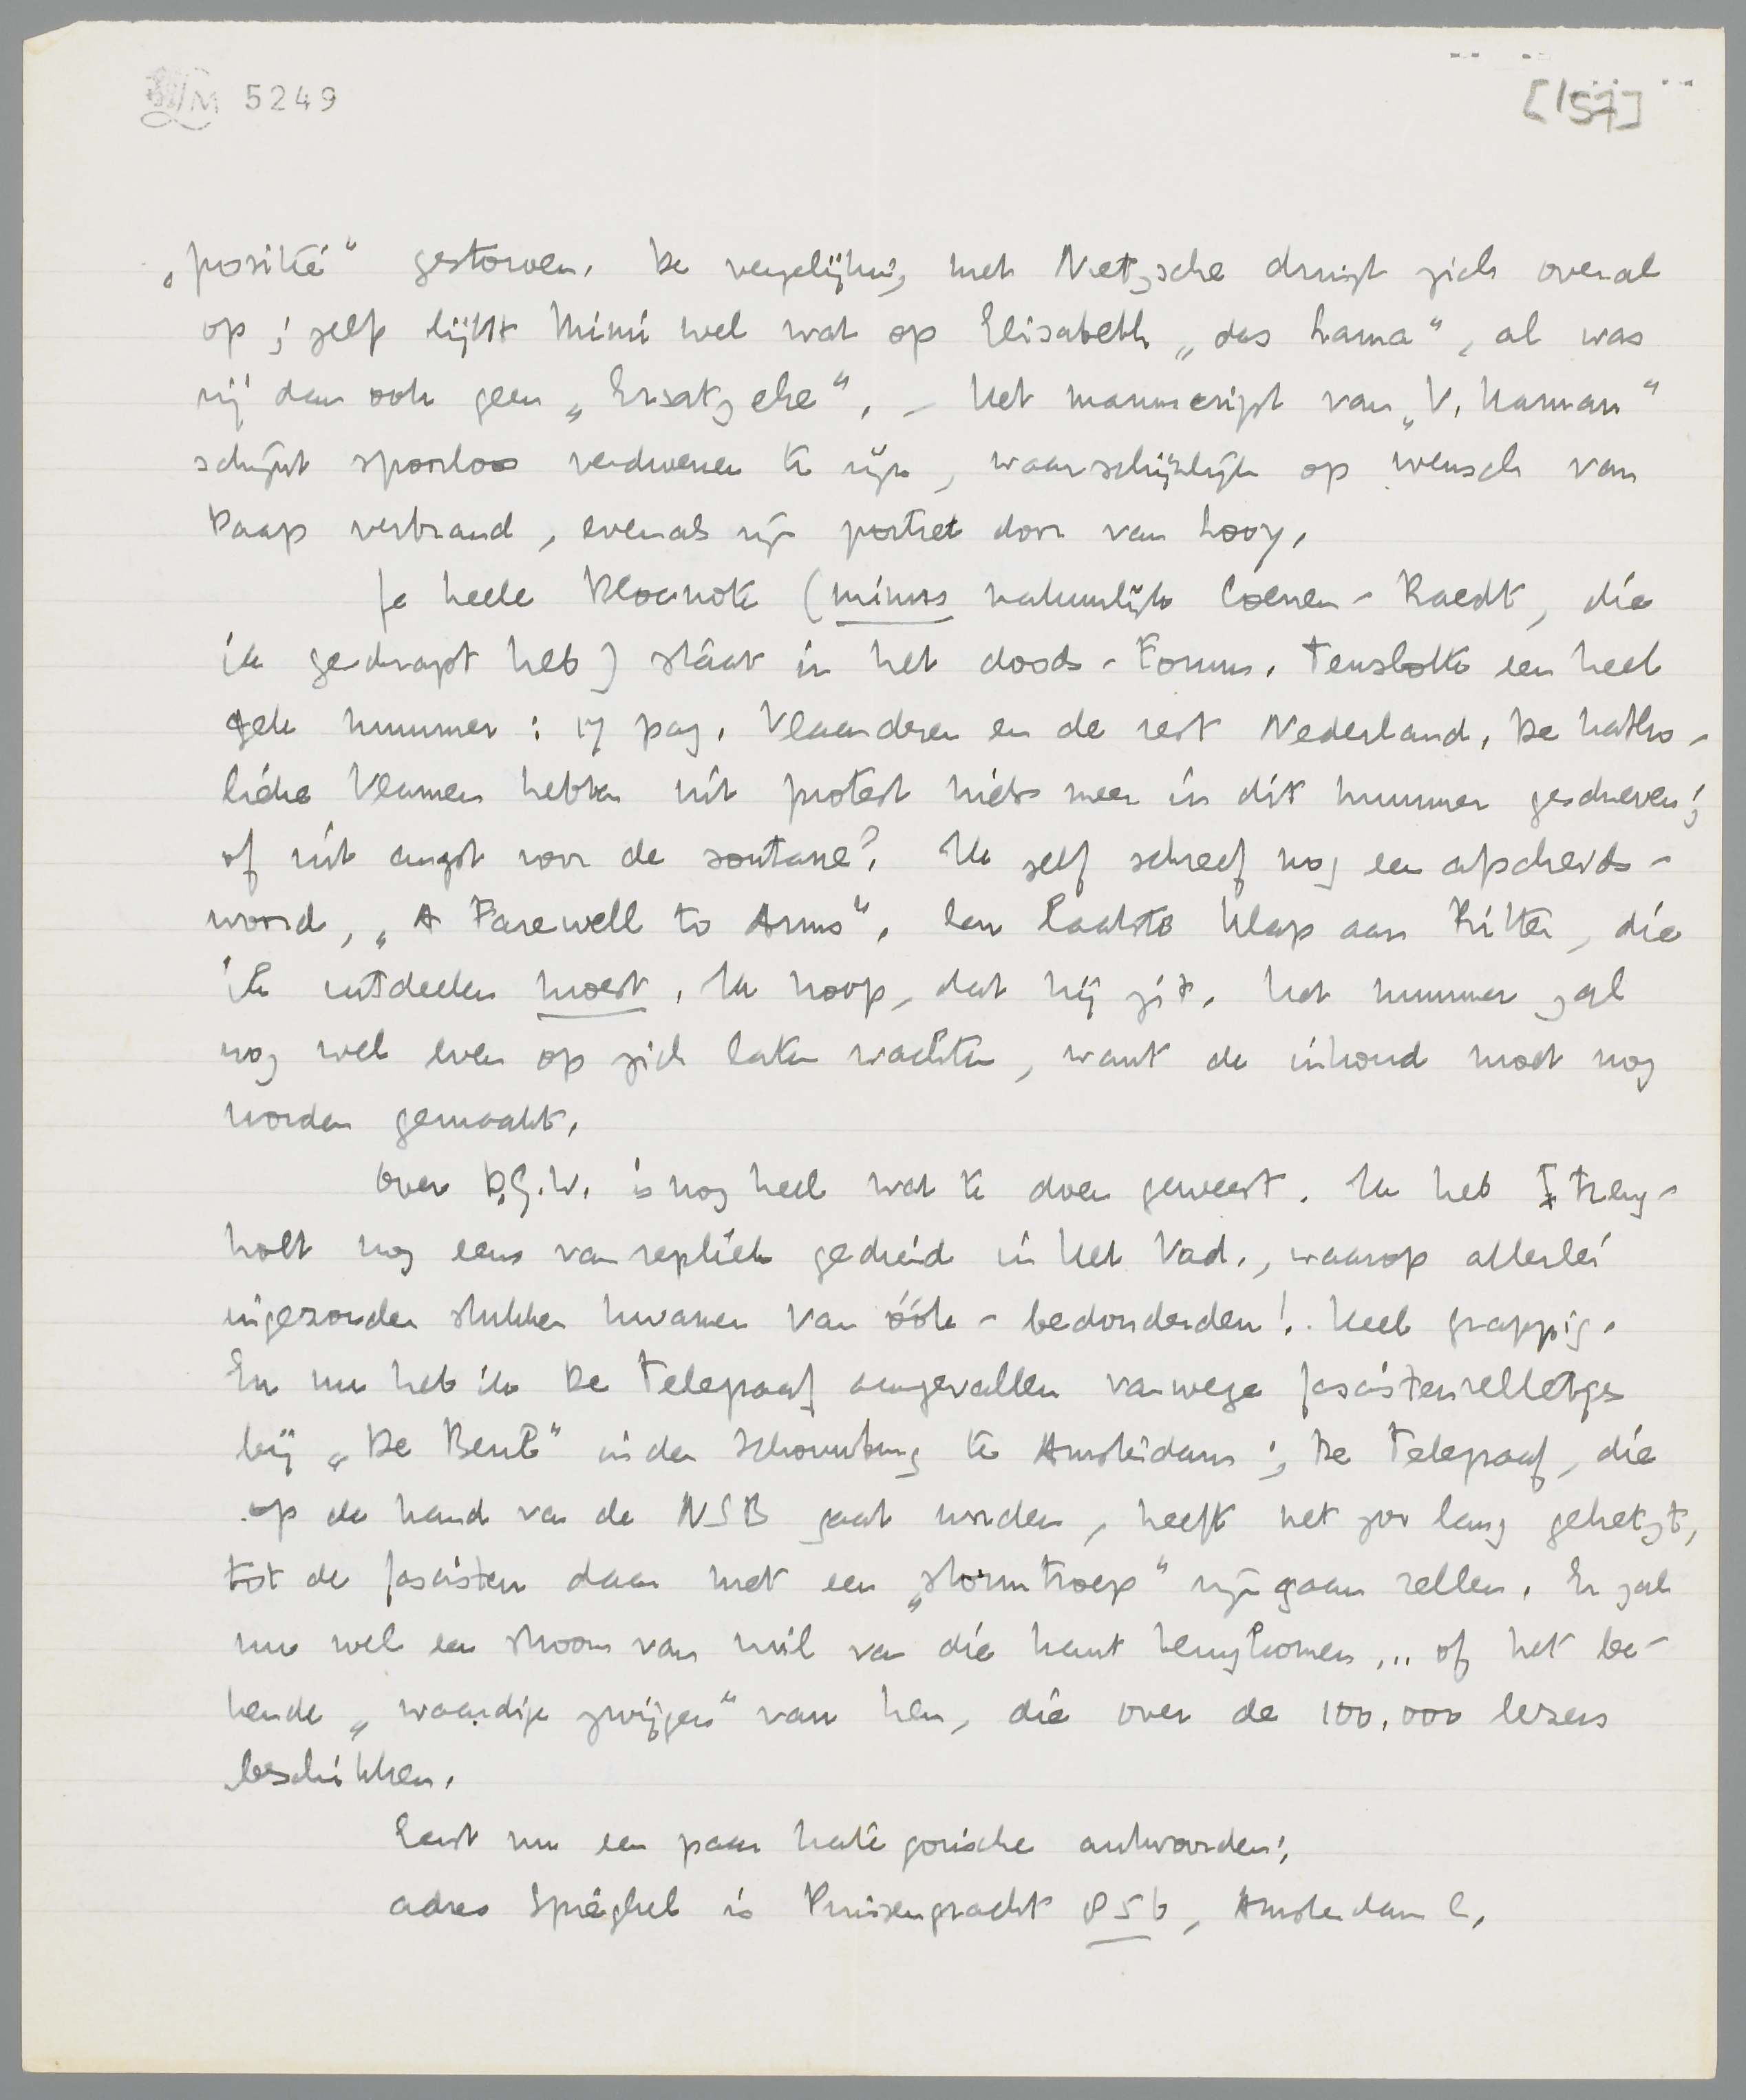 LM 5249
[157]
„positie” gestorven. De vergelijking met Nietzsche dringt zich overal
op; zelfs lijkt Mimi wel wat op Elisabeth „das Lama”, al was
zij dan ook geen „Ersatzehe”. – Het manuscript van „V. Haman”
schijnt spoorloos verdwenen te zijn, waarschijnlijk op wensch van
Daap verbrand, evenals zijn portret door van Looy.
Je heele Blocnote (minus natuurlijk Coenen-Raedt, die
ik geschrapt heb) staat in het doods-Forum. Tenslotte een heel
gek nummer: 17 pag. Vlaanderen en de rest Nederland. De katho-
lieke Vlamen hebben uit protest niets meer in dit nummer geschreven;
of uit angst voor de soutane? Ik zelf schreef nog een afscheids-
woord, „A Farewell to Arms”. Een laatste klap aan Ritter, die
ik uitdeelen moest. Ik hoop, dat hij zit. Het nummer zal
nog wel even op zich laten wachten, want de inhoud moet nog
worden gemaakt.
Over D.G.W. is nog heel wat te doen geweest. Ik heb Treng-
holt nog eens van repliek gediend in Het Vad., waarop allerlei
ingezonden stukken kwamen van óók-bedonderden! Heel grappig.
En nu heb ik De Telegraaf aangevallen vanwege fascistenrelletjes
bij „De Beul” in den Schouwburg te Amsterdam; De Telegraaf, die
op de hand van de NSB gaat worden, heeft net zoo lang gehetzt,
tot de fascisten daar met een „stormtroep” zijn gaan rellen. Er zal
nu wel een stroom van vuil van die kant terugkomen... of het be-
kende „waardige zwijgen” van hen, die over de 100.000 lezers
beschikken.
Eerst nu een paar kategorische antwoorden:
adres Spieghel is Prinsengracht 856, Amsterdam C.